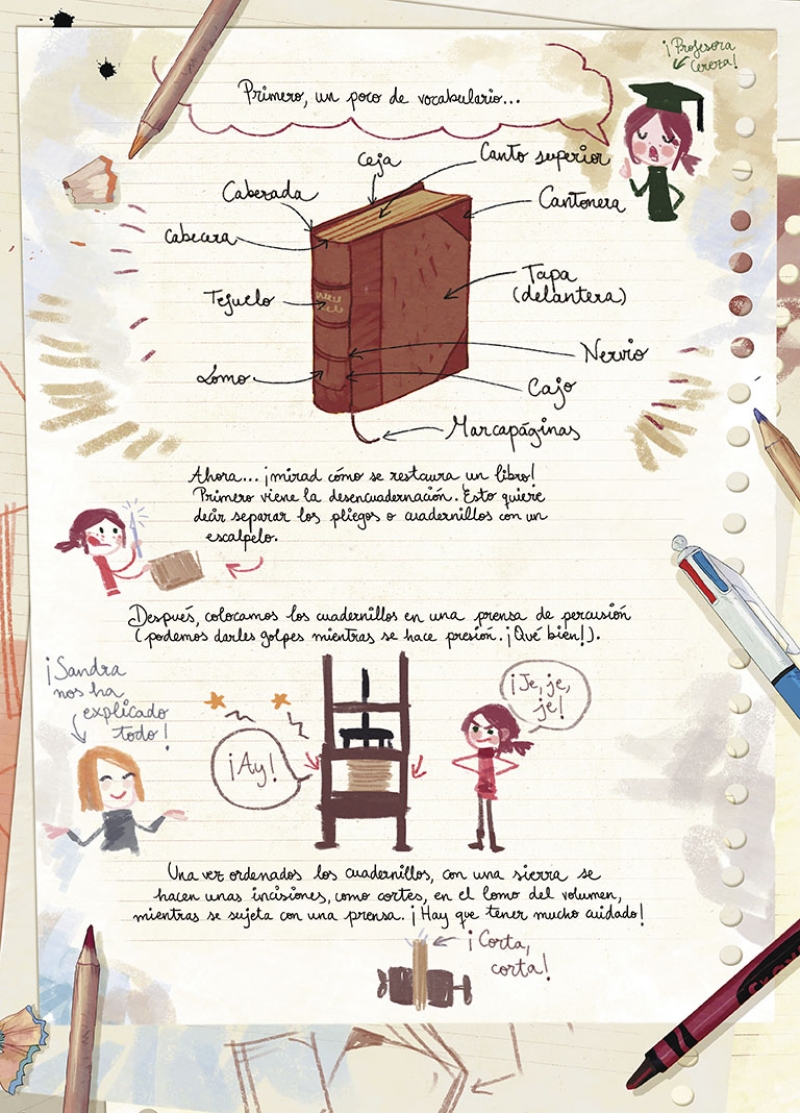 ¡Profesora
Cereza!
Primero, un poco de vocabulario...
Ceja
Canto superior
Cabezada
Cantonera
Cabecera
Tejuelo
Tapa
(delantera)
Nervio
Lomo
Cajo
Marcapáginas
Ahora... ¡mirad cómo se restaura un libro!
Primero viene la desencuadernación. Esto quiere
decir separar los pliegos o cuadernillos con un
escalpelo.
Después, colocamos los cuadernillos en una prensa de percusión
(podemos darles golpes mientras se hace presión. ¡Qué bien!).
¡Sandra
nos ha
explicado
todo!
¡Je, je,
je!
¡Ay!
Una vez ordenados los cuadernillos, con una sierra se
hacen unas incisiones, como cortes, en el lomo del volumen,
mientras se sujeta con una prensa. ¡Hay que tener mucho cuidado!
¡Corta,
corta!